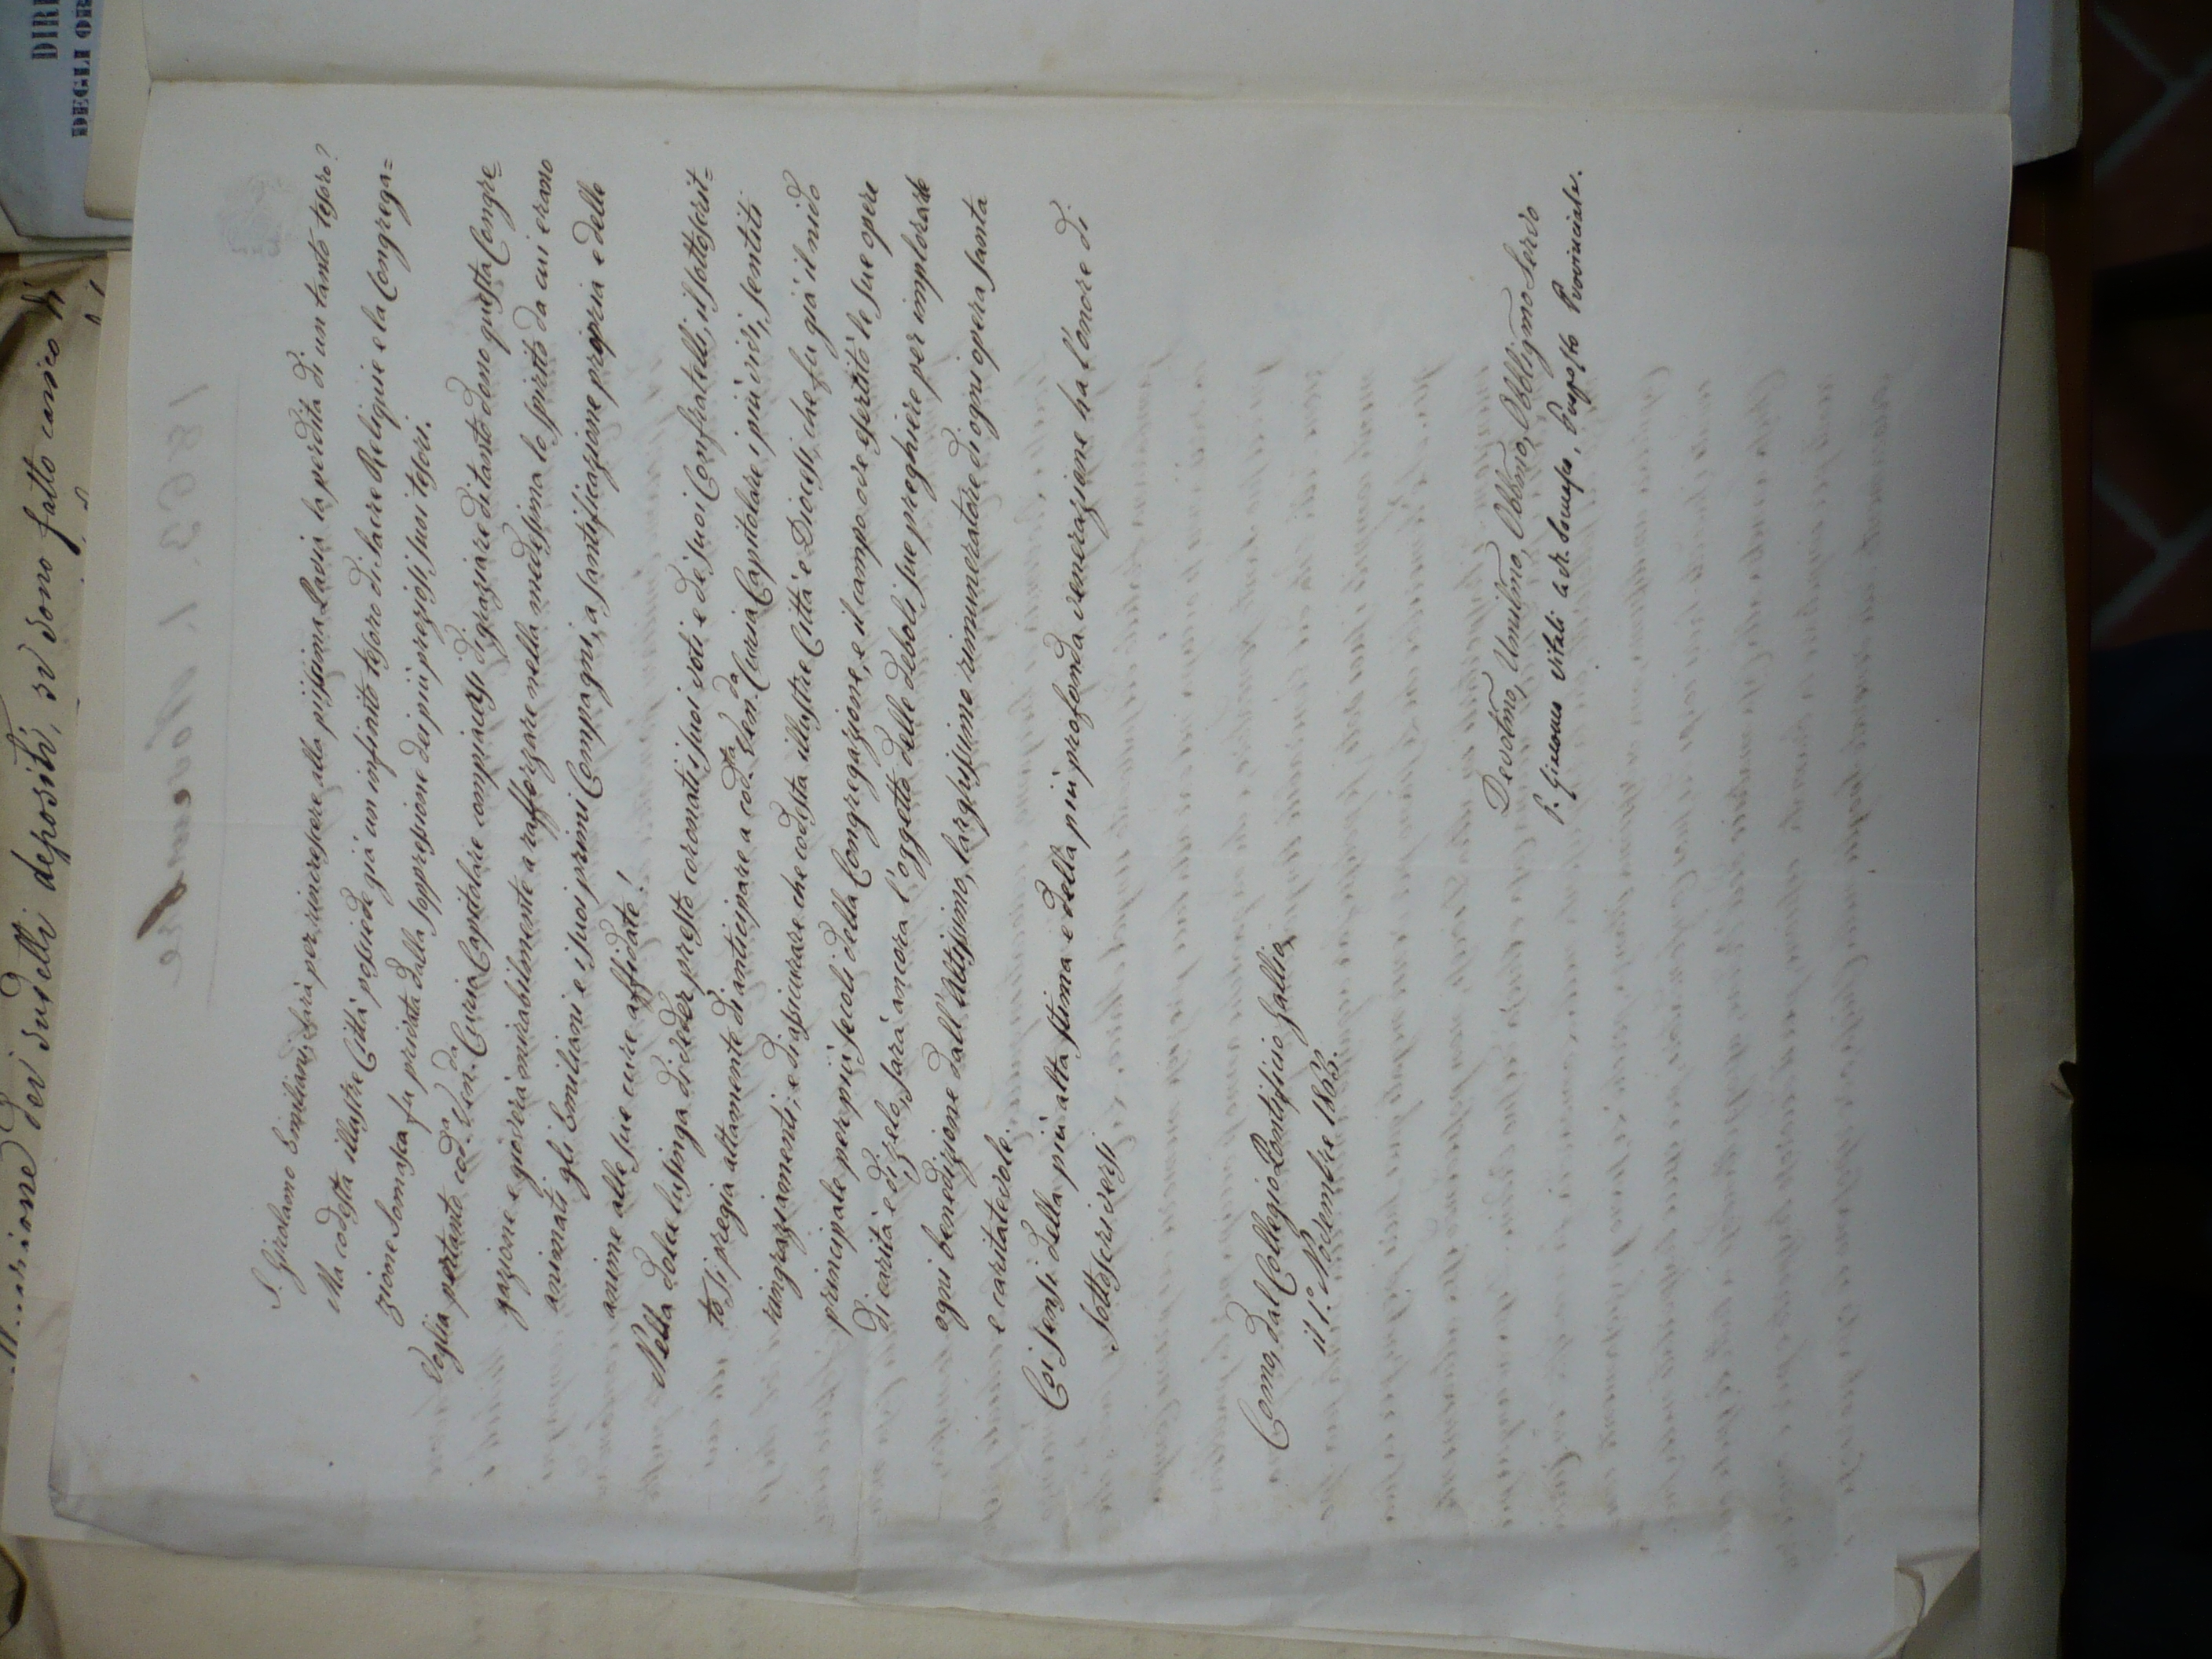 S. Girolamo Emiliani, sarà per rincrescere alla piissima Pavia la perdita di un tanto tesoro?
Ma codesta illustre Città possiede già un infinito tesoro di Sacre Reliquie e la Congrega=
zione Somasca fu privata dalla soppressione dei più preziosi suoi tesori.
Voglia pertanto cod.ª Ven.da Curia Capitolare compiacersi di graziare di tanto dono questa Congre=
gazione e gioverà mirabilmente a rafforzare nella medesima lo spirito da cui erano
animati gli Emiliani e i suoi primi Compagni, a santificazione propria e delle
anime alle sue cure affidate!
Nella dolce lusinga di veder presto coronati i suoi voti e de' suoi Confratelli, il sottoscrit=
to si pregia altamente di anticipare a cod.ta Ven.da Curia Capitolare i più vivi, sentiti
ringraziamenti; e di assicurare che codesta illustre Città e Diocesi, che fu già il nido
principale per più secoli della Congregazione, e il campo ove esercitò le sue opere
di carità e di zelo, sarà ancora l'oggetto delle deboli sue preghiere per implorarle
ogni benedizione dall'Altissimo, larghissimo rimuneratore di ogni opera santa
e caritatevole.
Coi sensi della più alta stima e della più profonda venerazione ha l'onore di
sottoscriversi
Como, dal Collegio Pontificio Gallio,
il 1.° Novembre 1863.
Devotmo, Umilmo, Obbmo, Obbligmo Servo
P. Giuseppe Vitali C.R. Somasco, Preposito Provinciale.
DEGLI OR
dei sudetti depositi, si sono fatto carico di